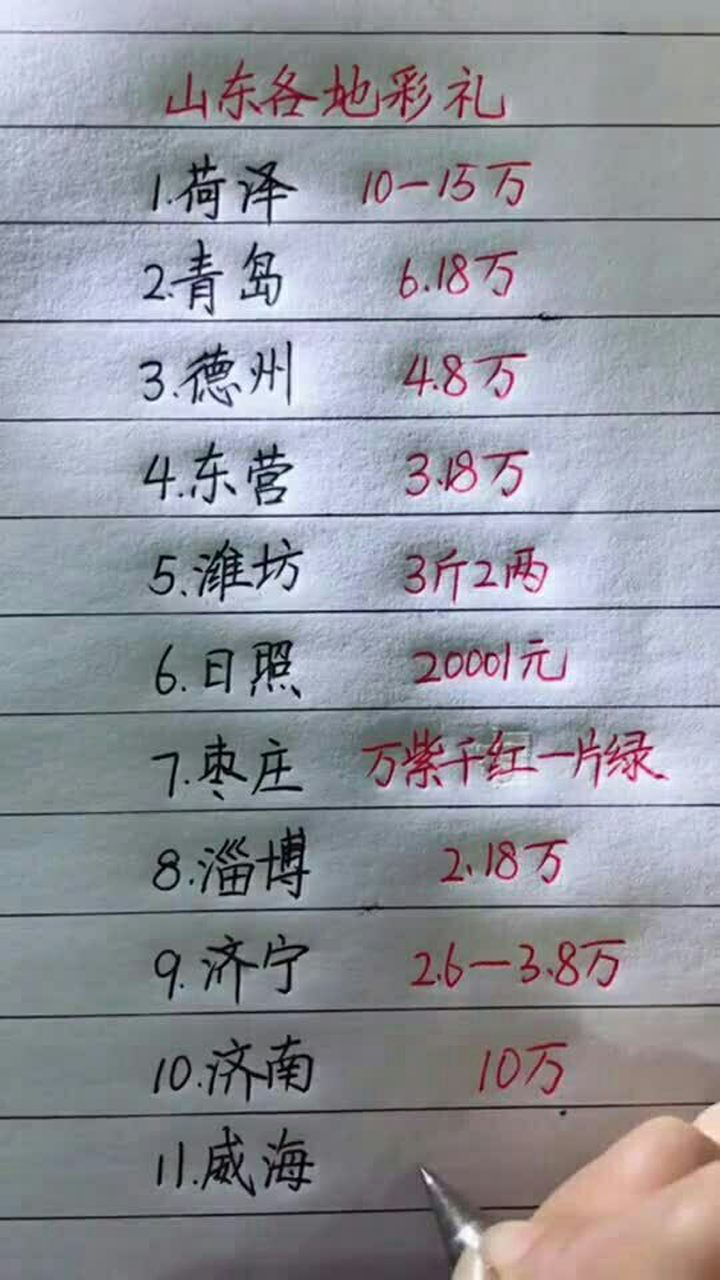 山东各地彩礼
1.荷泽 10-15万
2.青岛 6.18万
3.德州 4.8万
4.东营 3.18万
5.潍坊 3斤2两
6.日照 20001元
7.枣庄 万紫千红一片绿
8.淄博 2.18万
9.济宁 2.6-3.8万
10.济南 10万
11.威海